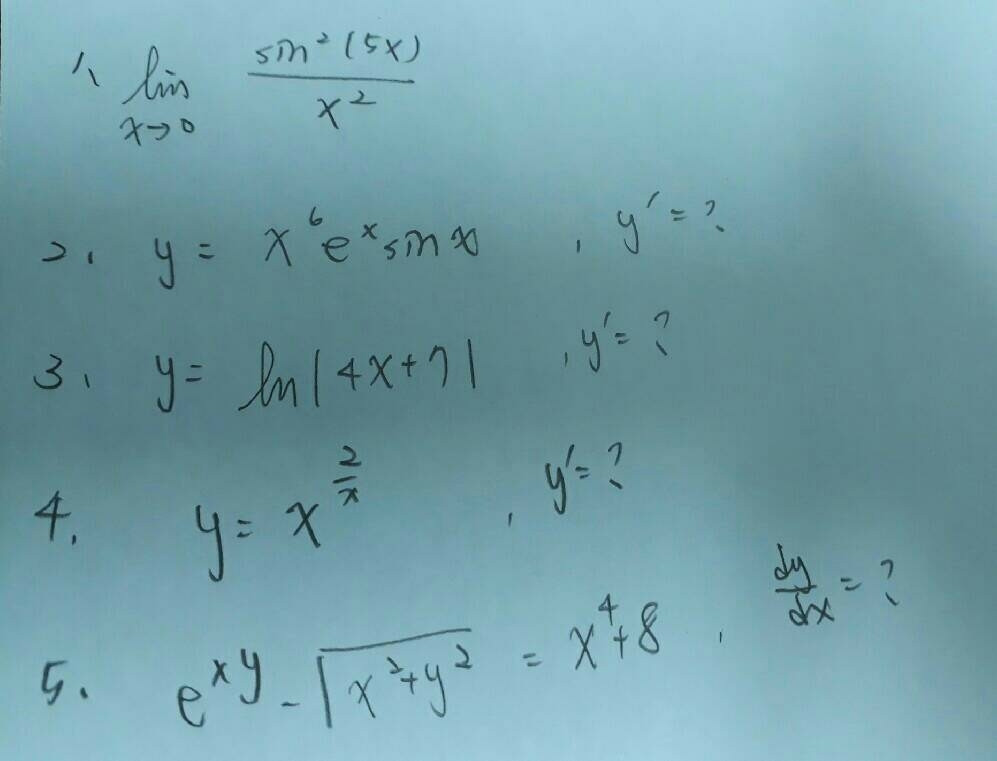 1、 lim x→0 sin²(5x) / x²
2、 y = x⁶eˣsinx , y′=?
3、 y= ln|4x+7| , y′= ?
4. y= x^(2/x) , y′= ?
5. e^(xy) - √(x²+y²) = x⁴+8 , dy/dx = ?